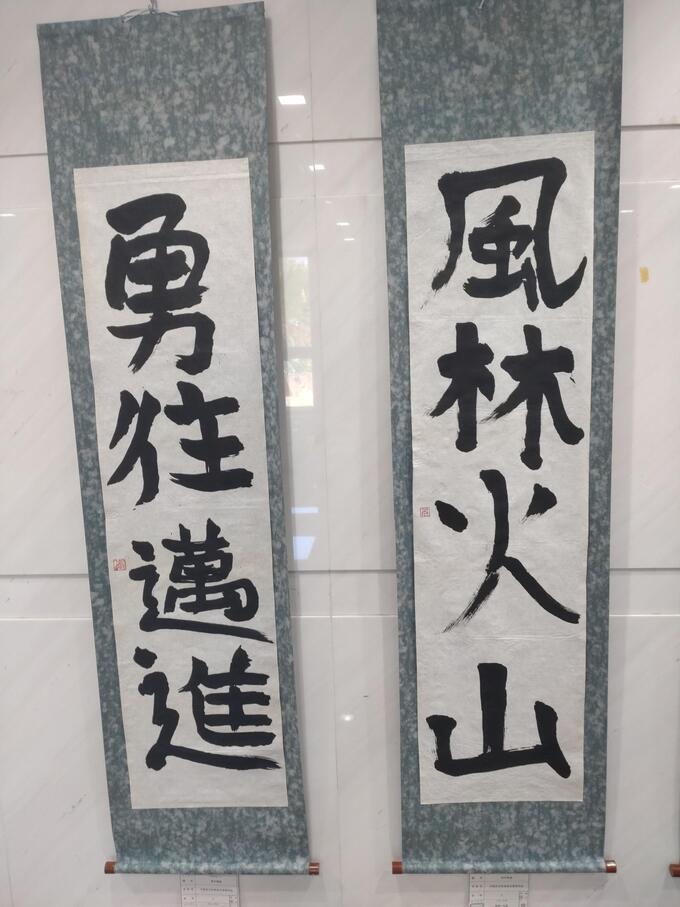 風林火山
勇往邁進